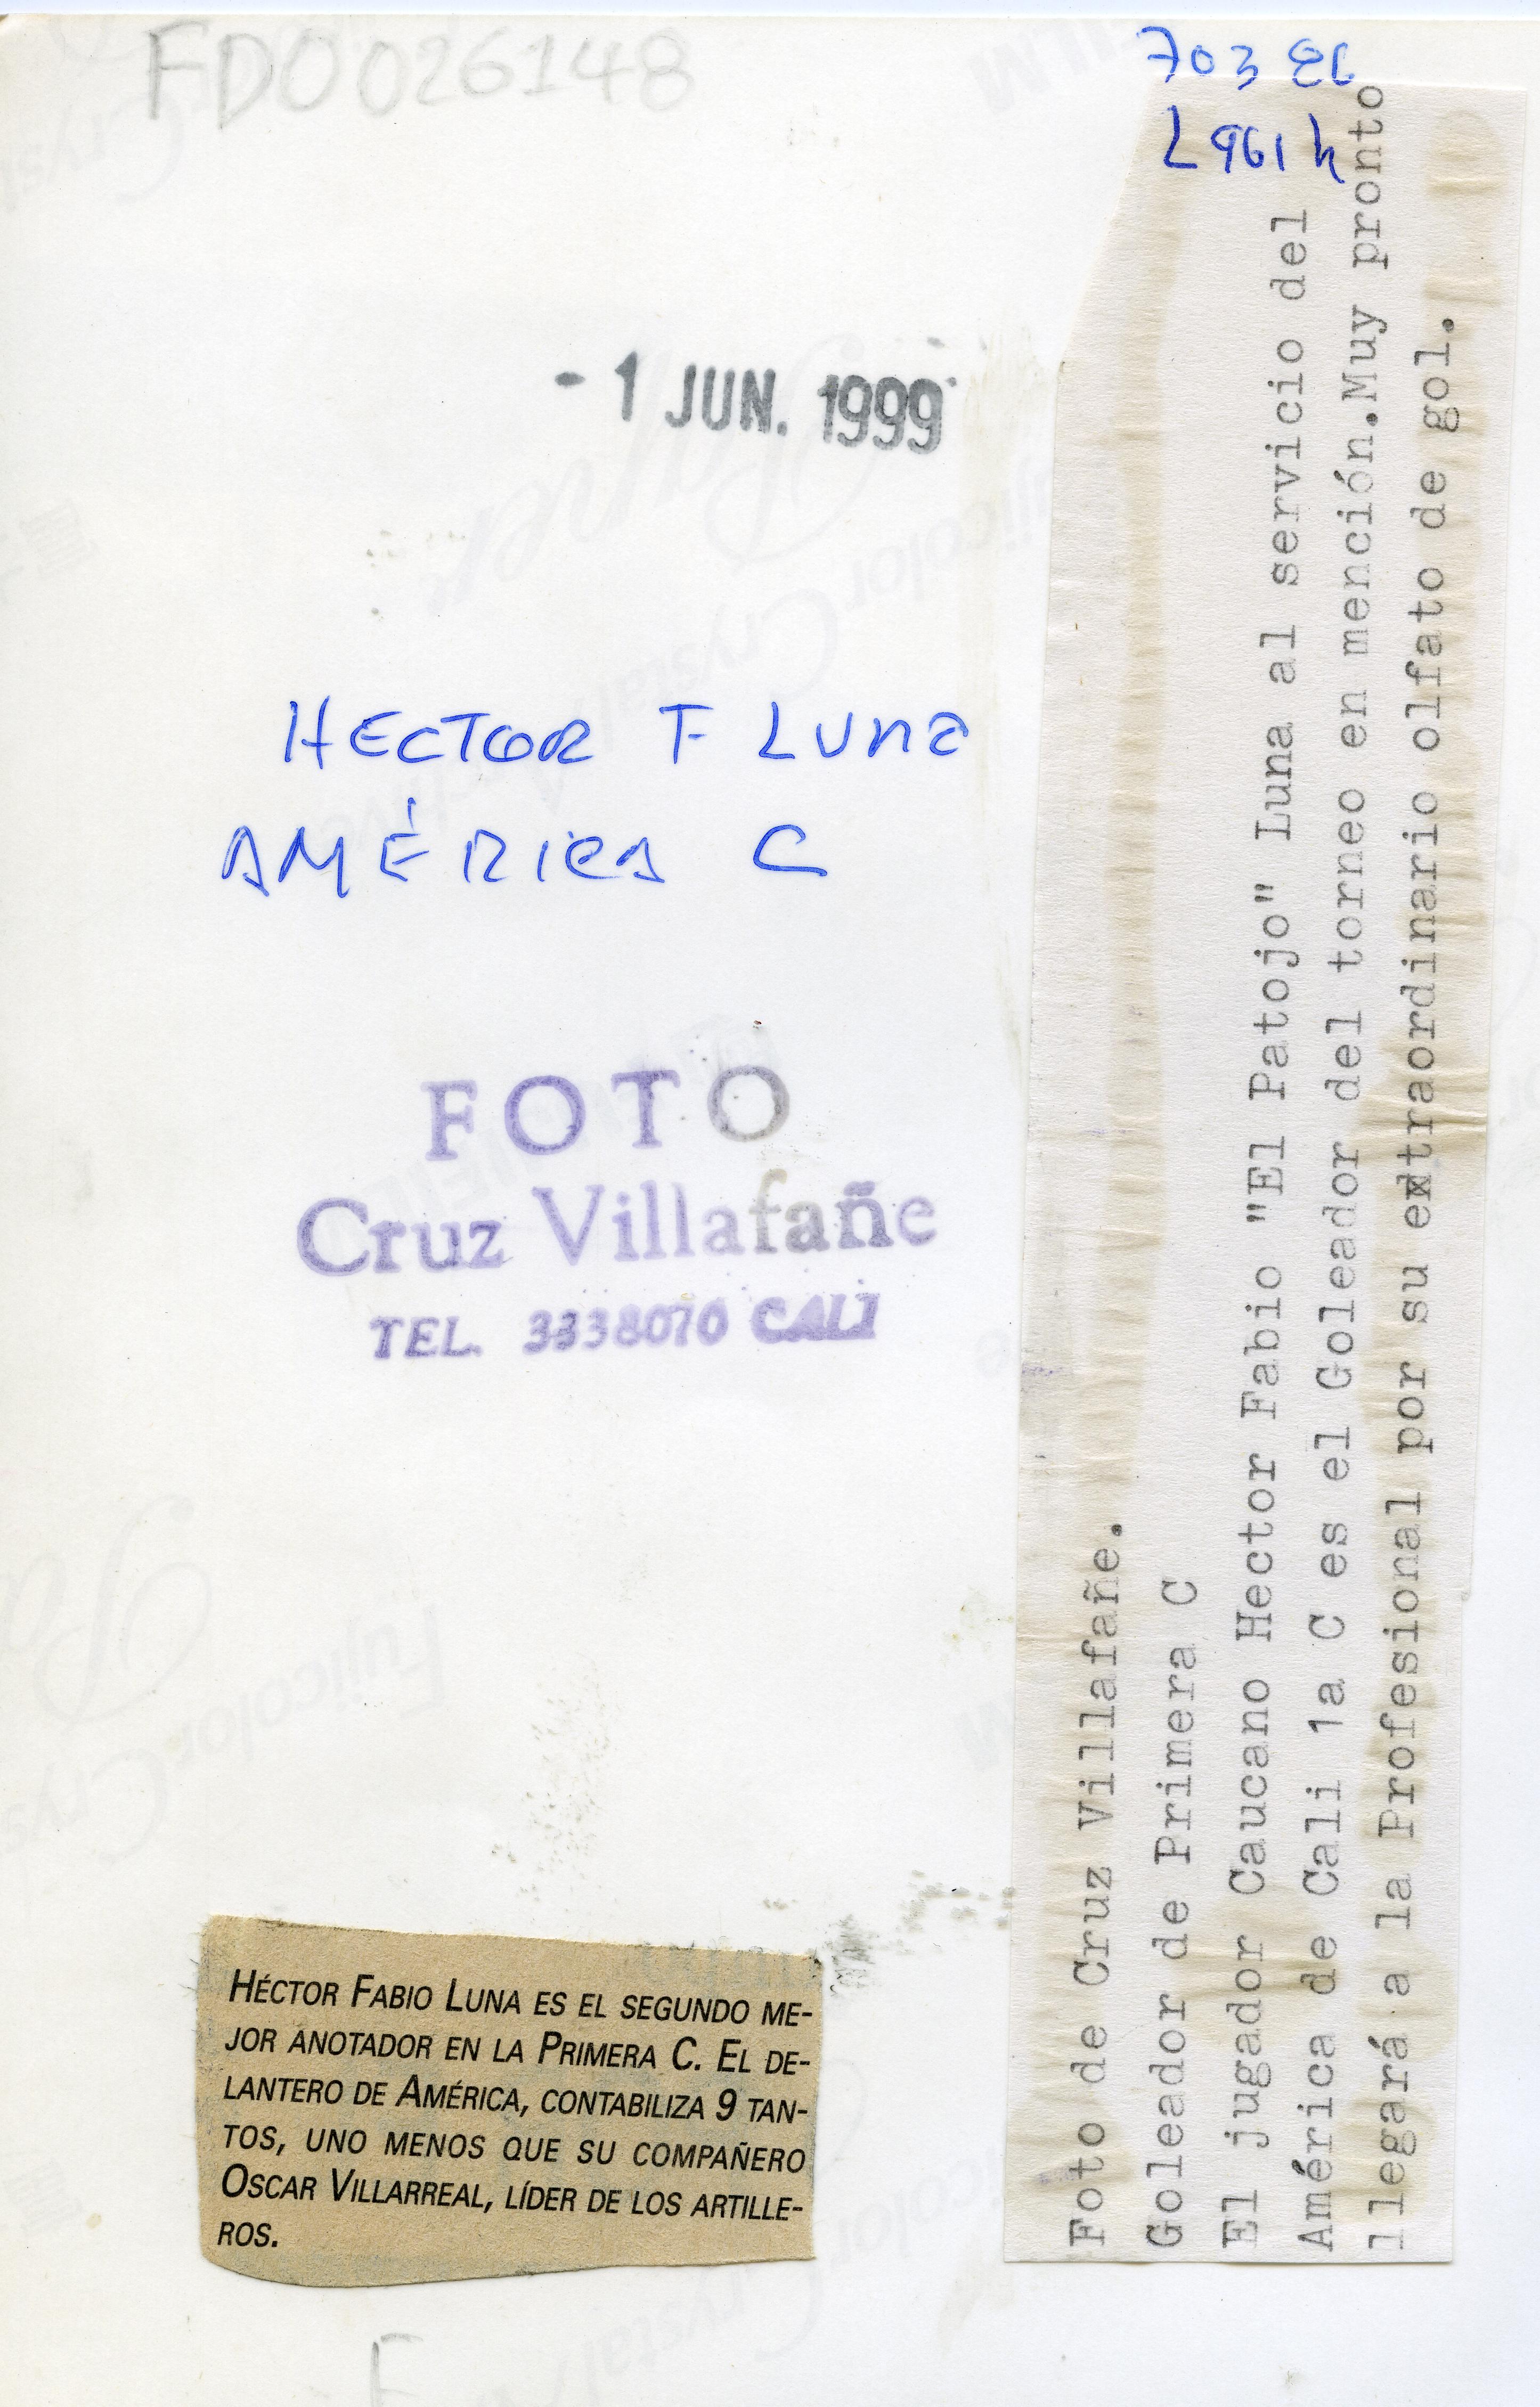 FD0026148
703 86
L961h
- 1 JUN. 1999
HECTOR F LUNA
AMÉRICA C
FOTO
Cruz Villafañe
TEL. 3338070 CALI
HÉCTOR FABIO LUNA ES EL SEGUNDO ME-
JOR ANOTADOR EN LA PRIMERA C. EL DE-
LANTERO DE AMÉRICA, CONTABILIZA 9 TAN-
TOS, UNO MENOS QUE SU COMPAÑERO
OSCAR VILLARREAL, LÍDER DE LOS ARTILLE-
ROS.
Foto de Cruz Villafañe.
Goleador de Primera C
El jugador Caucano Hector Fabio "El Patojo" Luna al servicio del
América de Cali 1a C es el Goleador del torneo en mención.Muy pronto
llegará a la Profesional por su extraordinario olfato de gol.